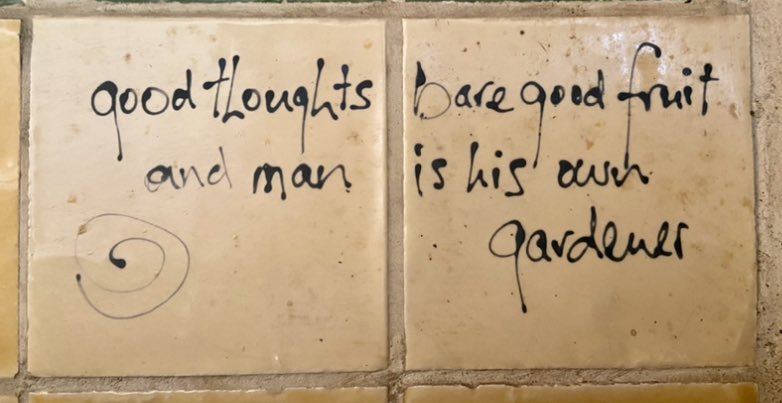 good thoughts bare good fruit
and man is his own
gardener